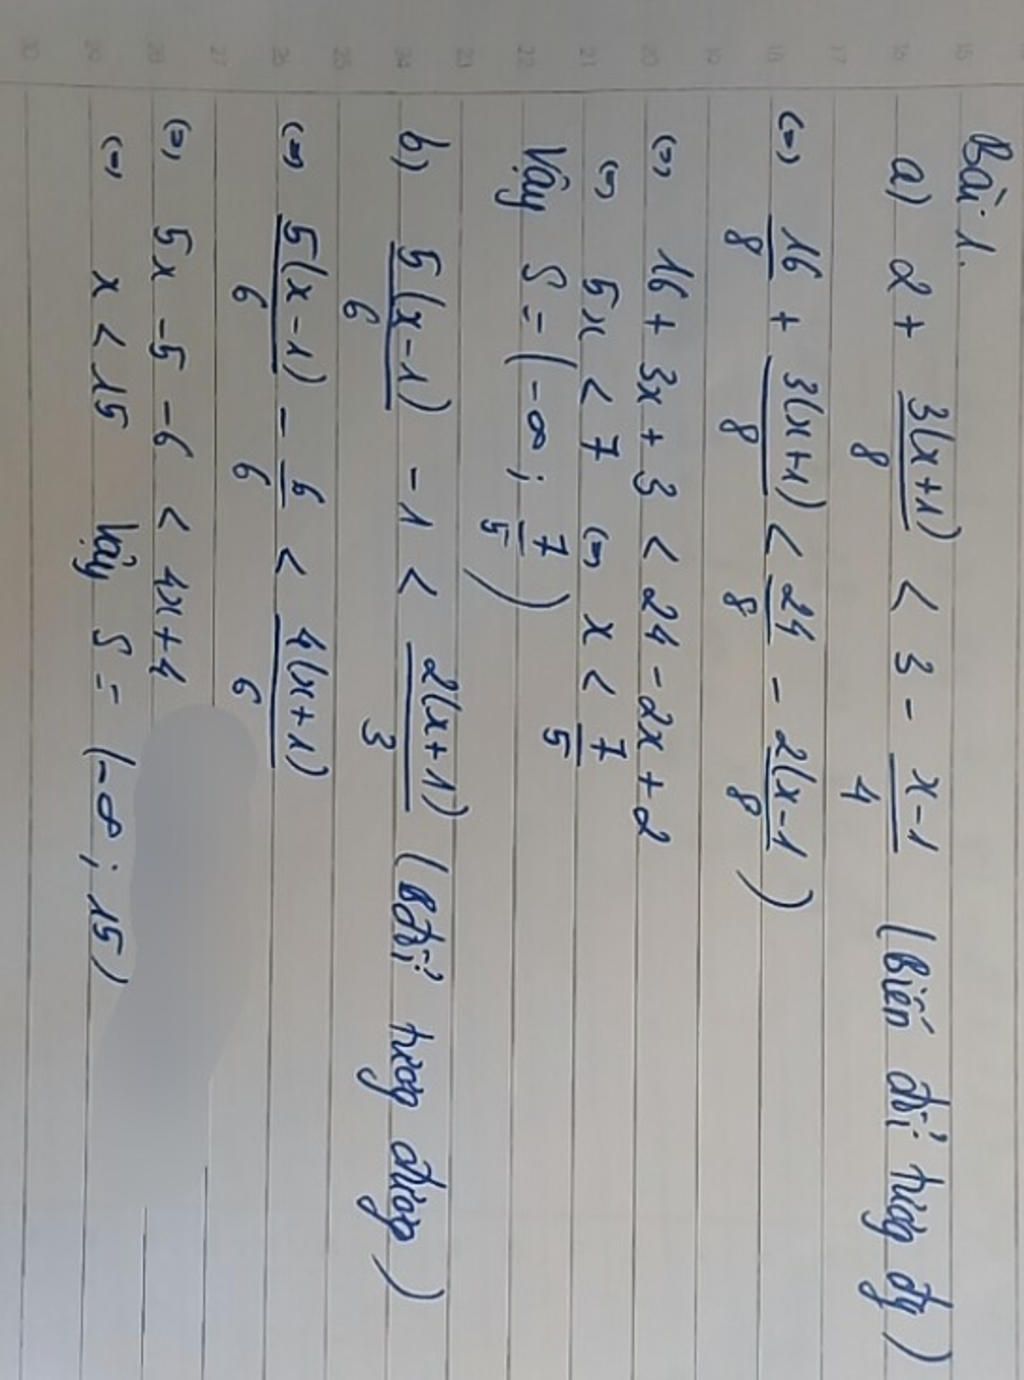 Bài 1.
a) 2 + 3(x+1)/8 < 3 - x-1/4 (Biến đổi tương đg)
(=) 16/8 + 3(x+1)/8 < 24/8 - 2(x-1)/8 )
(=) 16 + 3x + 3 < 24 - 2x + 2
(=) 5x < 7 (=) x < 7/5
Vậy S = (-∞; 7/5)
b) 5(x-1)/6 - 1 < 2(x+1)/3 (Bđổi tương đương)
(=) 5(x-1)/6 - 6/6 < 4(x+1)/6
(=) 5x - 5 - 6 < 4x + 4
(=) x < 15 Vậy S = (-∞; 15)